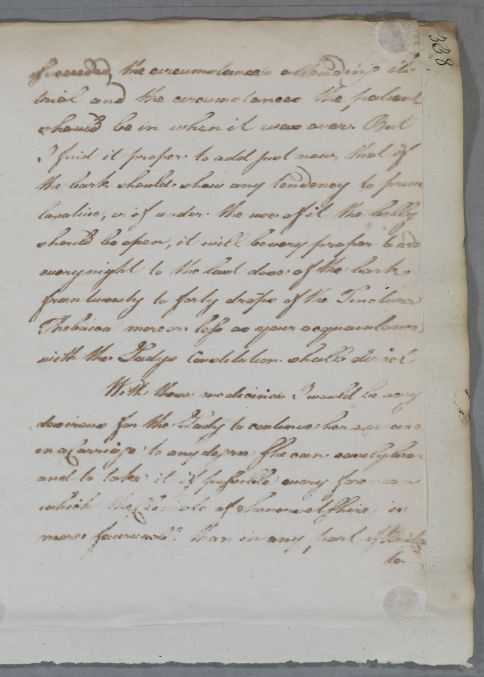 338
succeeded, the circumstances attending its
trial and the circumstances the patient
should be in when it was over. But
I find it proper to add just now, that if
the bark should show any tendency to prove
laxative, or if under the use of it the belly
should be open, it will be very proper to add
every night to the last dose of the bark
from twenty to forty drops of the Tinctura
Thebaica more or less as your acquaintance
with the Ladys Constitution shall direct
With these medicines I would be very
desirous for the Lady to continue her exercise
in a Carriage to any degree She can easily bear
and to take it if possible every forenoon
which the Climate of Somersetshire is
more favourable than in any part of
to